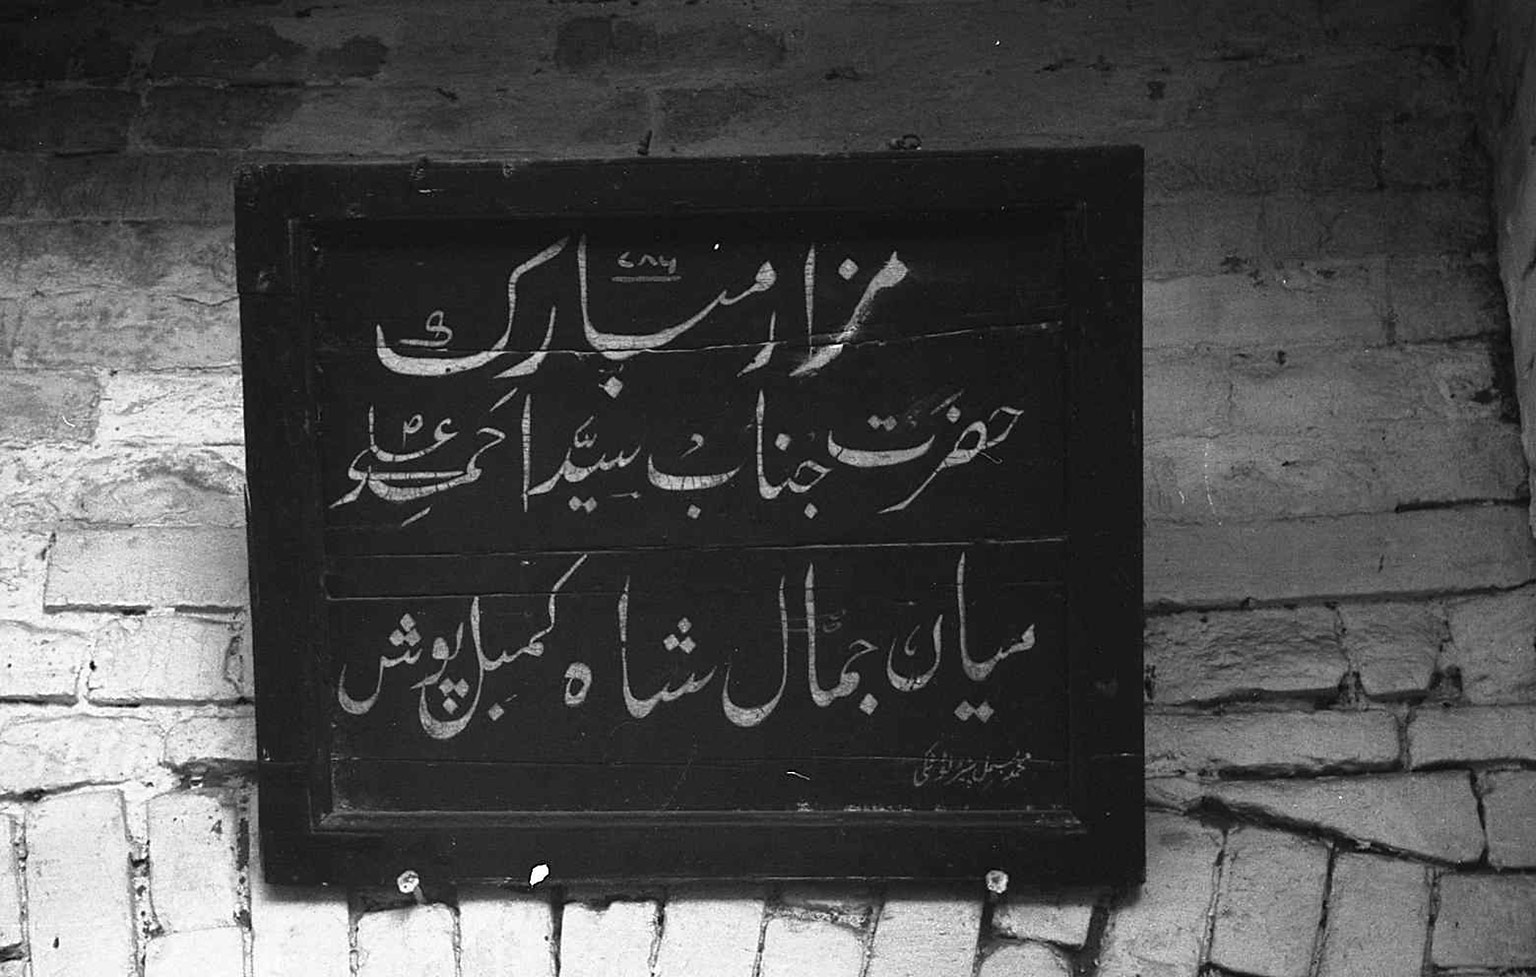 ۷۸۶
مزار مبارک
حضرت جناب سیّد احمد علی
میاں جمال شاہ کمبل پوش
محمد بسمل